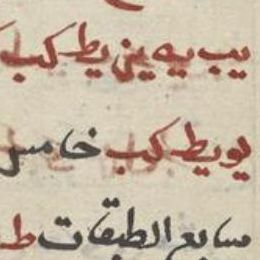 يب يه يني يط كب
يو يط كب خامس
سابع الطبقات ط